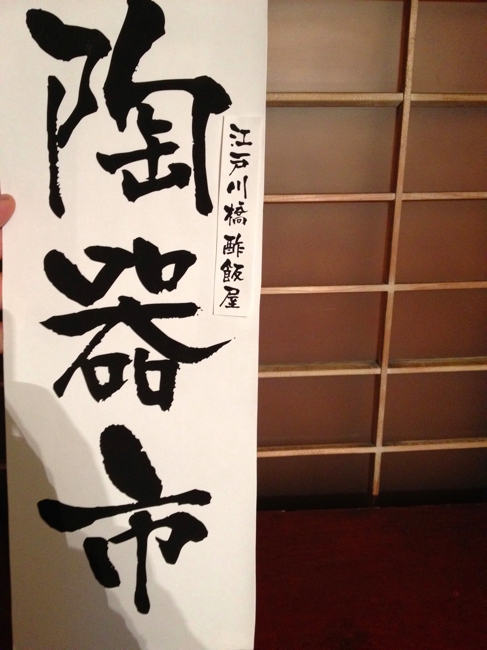 陶器市
江戸川橋酢飯屋